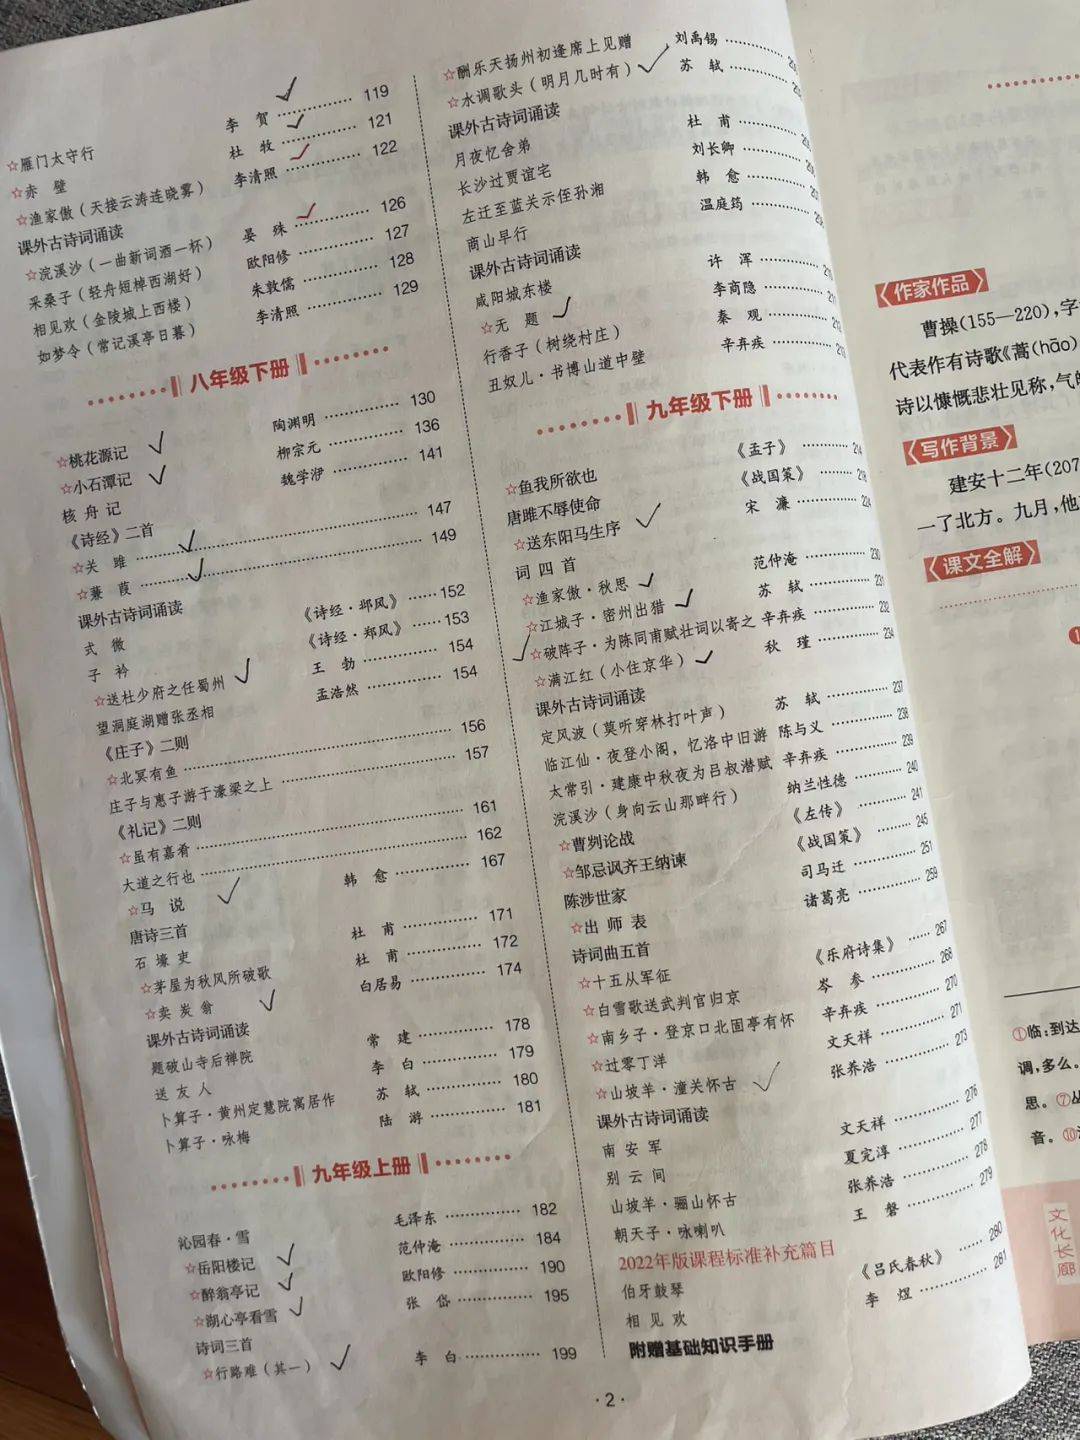 ☆雁门太守行 李 贺 119
☆赤 壁 杜 牧 121
☆渔家傲（天接云涛连晓雾） 李清照 122
课外古诗词诵读
☆浣溪沙（一曲新词酒一杯） 晏 殊 126
采桑子（轻舟短棹西湖好） 欧阳修 127
相见欢（金陵城上西楼） 朱敦儒 128
如梦令（常记溪亭日暮） 李清照 129
八年级下册
☆桃花源记 陶渊明 130
☆小石潭记 柳宗元 136
核舟记 魏学洢 141
《诗经》二首
☆关 雎 147
☆蒹 葭 149
课外古诗词诵读
式 微 《诗经·邶风》 152
子 衿 《诗经·郑风》 153
☆送杜少府之任蜀州 王 勃 154
望洞庭湖赠张丞相 孟浩然 154
《庄子》二则
☆北冥有鱼 156
庄子与惠子游于濠梁之上 157
《礼记》二则
☆虽有嘉肴 161
大道之行也 162
☆马 说 韩 愈 167
唐诗三首
石壕吏 杜 甫 171
☆茅屋为秋风所破歌 杜 甫 172
☆卖炭翁 白居易 174
课外古诗词诵读
题破山寺后禅院 常 建 178
送友人 李 白 179
卜算子·黄州定慧院寓居作 苏 轼 180
卜算子·咏梅 陆 游 181
九年级上册
沁园春·雪 毛泽东 182
☆岳阳楼记 范仲淹 184
☆醉翁亭记 欧阳修 190
☆湖心亭看雪 张 岱 195
诗词三首
☆行路难（其一） 李 白 199
☆酬乐天扬州初逢席上见赠 刘禹锡
☆水调歌头（明月几时有） 苏 轼
课外古诗词诵读
月夜忆舍弟 杜 甫
长沙过贾谊宅 刘长卿
左迁至蓝关示侄孙湘 韩 愈
商山早行 温庭筠
课外古诗词诵读
咸阳城东楼 许 浑
☆无 题 李商隐
行香子（树绕村庄） 秦 观
丑奴儿·书博山道中壁 辛弃疾
九年级下册
☆鱼我所欲也 《孟子》 214
唐雎不辱使命 《战国策》
☆送东阳马生序 宋 濂 224
词四首
☆渔家傲·秋思 范仲淹 230
☆江城子·密州出猎 苏 轼 231
☆破阵子·为陈同甫赋壮词以寄之 辛弃疾 232
☆满江红（小住京华） 秋 瑾 234
课外古诗词诵读
定风波（莫听穿林打叶声） 苏 轼 237
临江仙·夜登小阁，忆洛中旧游 陈与义 238
太常引·建康中秋夜为吕叔潜赋 辛弃疾 239
浣溪沙（身向云山那畔行） 纳兰性德 240
☆曹刿论战 《左传》 241
☆邹忌讽齐王纳谏 《战国策》 245
陈涉世家 司马迁 251
☆出师表 诸葛亮 259
诗词曲五首
☆十五从军征 《乐府诗集》 267
☆白雪歌送武判官归京 岑 参 268
☆南乡子·登京口北固亭有怀 辛弃疾 270
☆过零丁洋 文天祥 271
☆山坡羊·潼关怀古 张养浩 273
课外古诗词诵读
南安军 文天祥 276
别云间 夏完淳 277
山坡羊·骊山怀古 张养浩 278
朝天子·咏喇叭 王 磐 279
2022年版课程标准补充篇目
伯牙鼓琴 《吕氏春秋》 280
相见欢 李 煜 281
附赠基础知识手册
·2·
《作家作品》
曹操(155—220),字
代表作有诗歌《蒿(hāo)
诗以慷慨悲壮见称,气
《写作背景》
建安十二年(207
一了北方。九月,他
《课文全解》
①临:到达
调,多么。
思。⑦
音。⑩
文化长廊